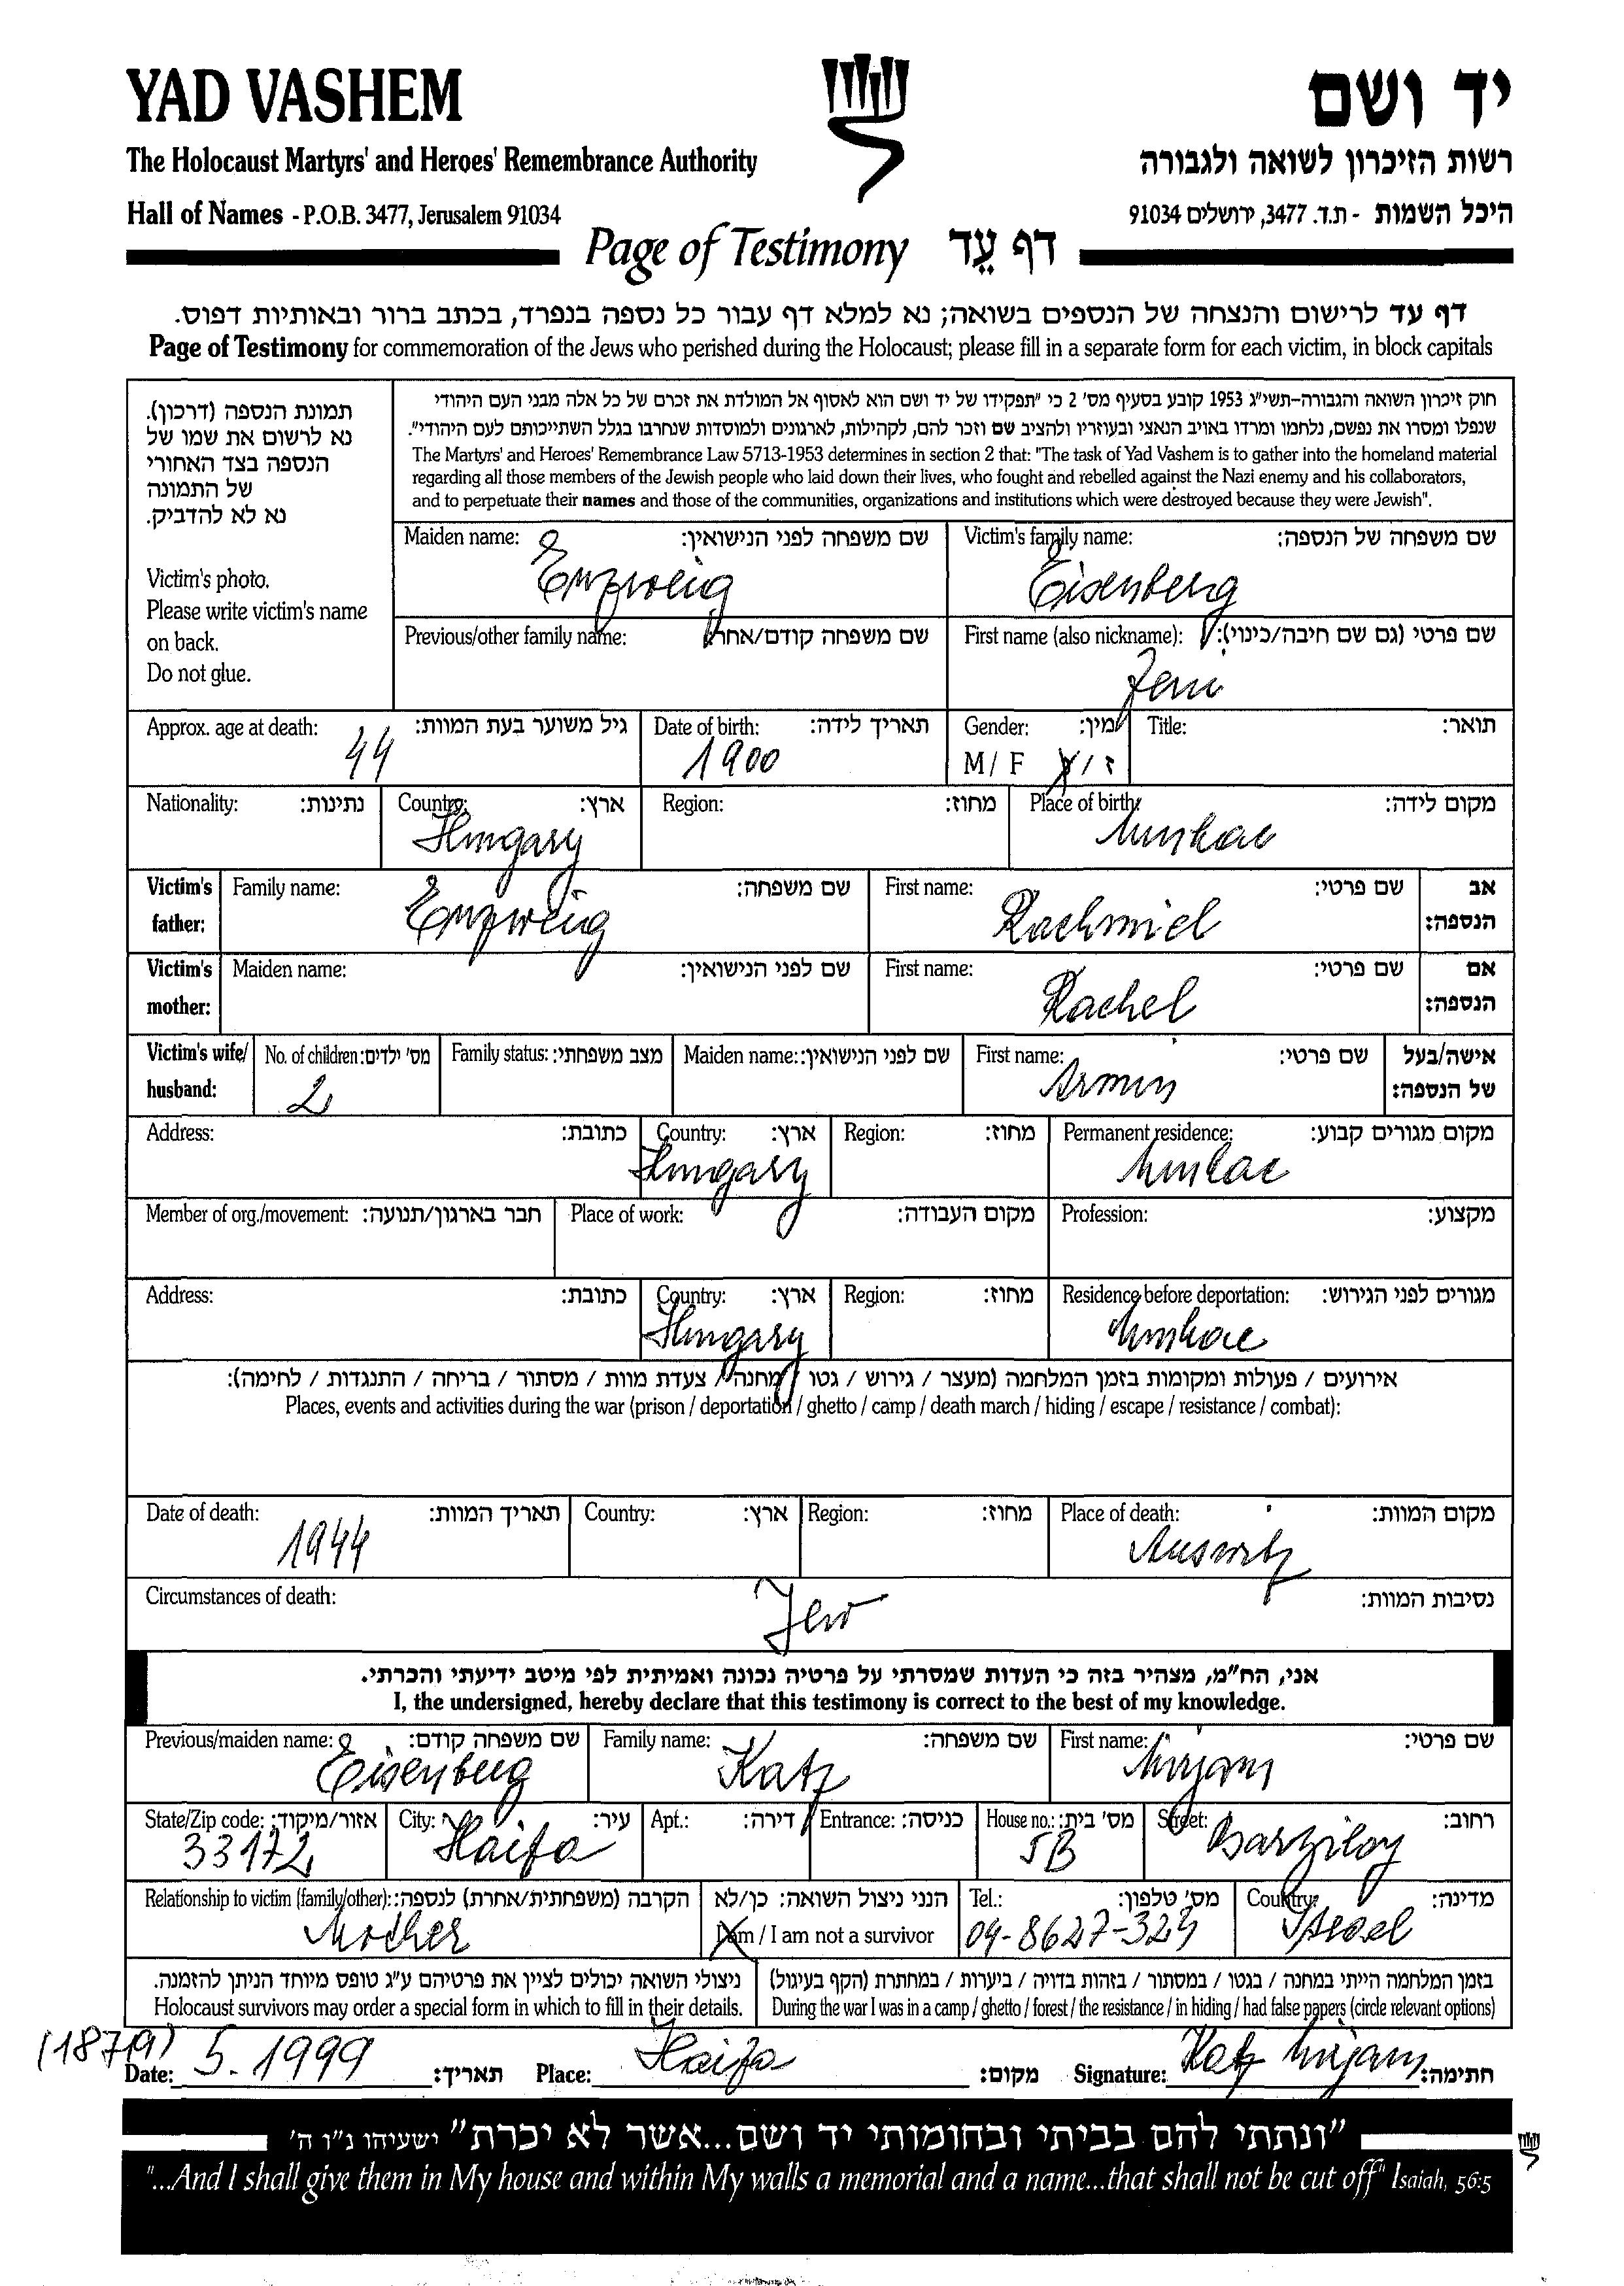 YAD VASHEM
יד ושם
The Holocaust Martyrs' and Heroes' Remembrance Authority
רשות הזיכרון לשואה ולגבורה
Hall of Names - P.O.B. 3477, Jerusalem 91034
היכל השמות - ת.ד. 3477, ירושלים 91034
Page of Testimony דף עֵד
דף עד לרישום והנצחה של הנספים בשואה; נא למלא דף עבור כל נספה בנפרד, בכתב ברור ובאותיות דפוס.
Page of Testimony for commemoration of the Jews who perished during the Holocaust; please fill in a separate form for each victim, in block capitals
תמונת הנספה (דרכון).
נא לרשום את שמו של
הנספה בצד האחורי
של התמונה
נא לא להדביק.
Victim's photo.
Please write victim's name
on back.
Do not glue.
חוק זיכרון השואה והגבורה-תשי"ג 1953 קובע בסעיף מס' 2 כי "תפקידו של יד ושם הוא לאסוף אל המולדת את זכרם של כל אלה מבני העם היהודי
שנפלו ומסרו את נפשם, נלחמו ומרדו באויב הנאצי ובעוזריו ולהציב שם וזכר להם, לקהילות, לארגונים ולמוסדות שנחרבו בגלל השתייכותם לעם היהודי".
The Martyrs' and Heroes' Remembrance Law 5713-1953 determines in section 2 that: "The task of Yad Vashem is to gather into the homeland material
regarding all those members of the Jewish people who laid down their lives, who fought and rebelled against the Nazi enemy and his collaborators,
and to perpetuate their names and those of the communities, organizations and institutions which were destroyed because they were Jewish".
Maiden name: שם משפחה לפני הנישואין: Victim's family name: שם משפחה של הנספה:
Enzweig Eisenberg
Previous/other family name: שם משפחה קודם/אחר: First name (also nickname): שם פרטי (גם שם חיבה/כינוי):
Jeni
Approx. age at death: גיל משוער בעת המוות: Date of birth: תאריך לידה: Gender: מין: Title: תואר:
44 1900 M / F ז / נ
Nationality: נתינות: Country: ארץ: Region: מחוז: Place of birth: מקום לידה:
Hungary Munkac
Victim's father: Family name: שם משפחה: First name: שם פרטי: אב הנספה:
Enzweig Rachmiel
Victim's mother: Maiden name: שם לפני הנישואין: First name: שם פרטי: אם הנספה:
Rachel
Victim's wife/ husband: No. of children: מס' ילדים: Family status: מצב משפחתי: Maiden name: שם לפני הנישואין: First name: שם פרטי: אישה/בעל של הנספה:
2 Armin
Address: כתובת: Country: ארץ: Region: מחוז: Permanent residence: מקום מגורים קבוע:
Hungary Munkac
Member of org./movement: חבר בארגון/תנועה: Place of work: מקום העבודה: Profession: מקצוע:
Address: כתובת: Country: ארץ: Region: מחוז: Residence before deportation: מגורים לפני הגירוש:
Hungary Munkac
אירועים / פעולות ומקומות בזמן המלחמה (מעצר / גירוש / גטו / מחנה / צעדת מוות / מסתור / בריחה / התנגדות / לחימה):
Places, events and activities during the war (prison / deportation / ghetto / camp / death march / hiding / escape / resistance / combat):
Date of death: תאריך המוות: Country: ארץ: Region: מחוז: Place of death: מקום המוות:
1944 Auswitz
Circumstances of death: נסיבות המוות:
Jew
אני, הח"מ, מצהיר בזה כי העדות שמסרתי על פרטיה נכונה ואמיתית לפי מיטב ידיעתי והכרתי.
I, the undersigned, hereby declare that this testimony is correct to the best of my knowledge.
Previous/maiden name: שם משפחה קודם: Family name: שם משפחה: First name: שם פרטי:
Eisenberg Katz Mirjam
State/Zip code: אזור/מיקוד: City: עיר: Apt.: דירה: Entrance: כניסה: House no.: מס' בית: Street: רחוב:
33172 Haifa 5B Barzilay
Relationship to victim (family/other): הקרבה (משפחתית/אחרת) לנספה: הנני ניצול השואה: כן/לא Tel.: מס' טלפון: Country: מדינה:
Mother I am / I am not a survivor 04-8627-324 Israel
ניצולי השואה יכולים לציין את פרטיהם ע"ג טופס מיוחד הניתן להזמנה.
Holocaust survivors may order a special form in which to fill in their details.
בזמן המלחמה הייתי במחנה / בגטו / במסתור / בזהות בדויה / ביערות / במחתרת (הקף בעיגול)
During the war I was in a camp / ghetto / forest / the resistance / in hiding / had false papers (circle relevant options)
(18719)
Date: 5.1999 תאריך: Place: Haifa מקום: Signature: Katz Mirjam חתימה:
"ונתתי להם בביתי ובחומותי יד ושם...אשר לא יכרת" ישעיהו נ"ו ה'
"...And I shall give them in My house and within My walls a memorial and a name...that shall not be cut off" Isaiah, 56:5